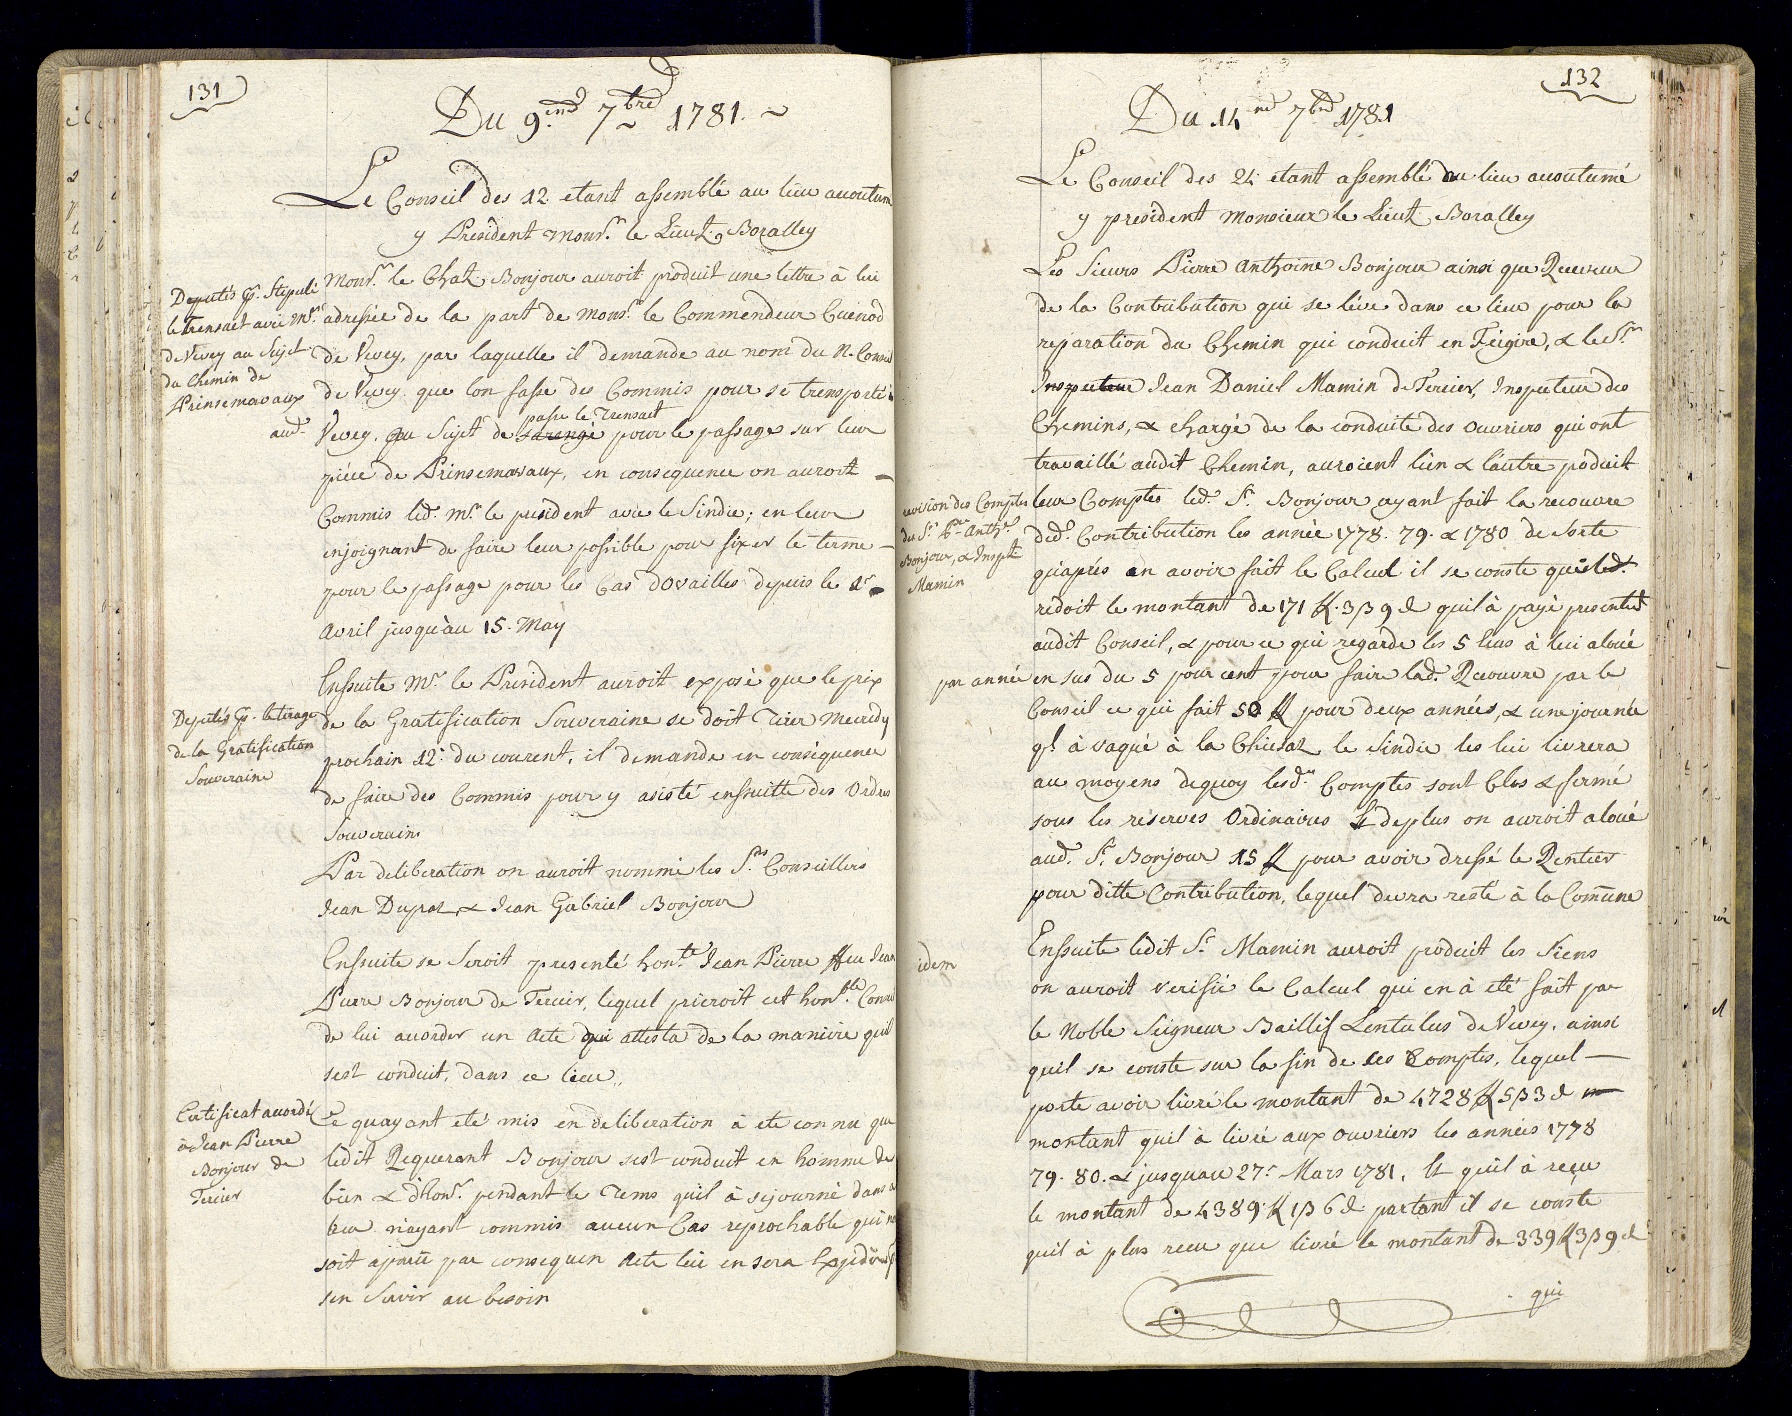 131
Du 9.end 7bre 1781.
Le Conseil des 12 etant assemblé au lieu acoutum
y President Monsr. le Lieut. Boralley
Deputés pr. Stipulé
le Trensact avec Mrs.
de Vevey au Sujet
du Chemin de
Prinsemavaux
Monsr. le Chat. Bonjour auroit produit une lettre à lui
adressée de la part de Monsr. le Commendeur Cuenod
de Vevey, par laquelle il demande au nom du N. Conseil
de Vevey que lon fasse des Commis pour se trensporté à
aud. Vevey. au Sujet de passe le Trensact pour le passage sur leur
piéce de Prinsemavaux, en consequence on auroit
Commis led. Mr. le president avec le Sindic; en leur
enjoignant de faire leur possible pour fixer le terme
pour le passage pour les Cas dovailles depuis le 1r
Avril jusqu'au 15. May
Deputés pr. le tirage
de la Gratification
Souveraine
Enssuite Mr. le President auroit exposé que le prix
de la Gratification Souveraine se doit Tirer Mecridy
prochain 12e. du courent, il demande en conséquence
de faire des Commis pour y asisté enssuitte des Ordres
Souverains
Par deliberation on auroit nommé les Srs. Conseillers
Jean Dupraz & Jean Gabriel Bonjour
Enssuite se Seroit presenté honte. Jean Pierre ffeu Jean
Pierre Bonjour de Tercier, lequel prieroit cet honble. Conseil
de lui accorder un Acte qui attesta de la maniére quil
sest conduit, dans ce lieu.,
Certificat acordé
à Jean Pierre
Bonjour de
Tercier
Ce quayant eté mis en deliberation à ete connu que
ledit Requerant Bonjour sest conduit en homme de
bien & d'honr. pendant le Tems quil à sejourné dans ce
lieu n'ayant commis aucun Cas reprochable qui ne
soit ajouté par consequen Acte lui en sera Expedié
sen Servir au besoin
132
Du 14nd 7bre 1781
Le Conseil des 24 etant assemblé au lieu acoutumé
y president Monsieur le Lieut. Boralley
Les Sieurs Pierre Anthoine Bonjour ainsi que Receveur
de la Contribution qui se léve dans ce lieu pour la
reparation du Chemin qui conduit en Feigire, & le Sr.
Inspecteur Jean Daniel Mamin de Tercier, Inspecteur des
Chemins, & chargé de la conduite des ouvriers qui ont
travaillé audit Chemin, auroient l'un & l'autre poduit
revision des Comptes
du Sr. Pre. Anthe.
Bonjour, & Inspt.
Mamin
leur Comptes led. Sr. Bonjour ayant fait la recouvre
ded. Contribution les année 1778. 79. & 1780 de Sorte
qu'aprés en avoir fait le Calcul il se conste que led.
redoit le montant de 171 ff. 3 ß 9 d quil à payé presentemt
audit Conseil, & pour ce qui regarde les 5 Ecus à lui aloué
par année en sus du 5 pour cent pour faire lad. Recouvre par le
Conseil ce qui fait 50 ff pour deux années, & une journée
ql. à vaqué à la Chiesaz le Sindic les lui livrera
au moyens dequoy lesd. Comptes sont Clos & fermé
sous les reserves Ordinaires Et deplus on auroit aloué
aud. Sr. Bonjour 15 ff pour avoir dressé le Rentier
pour ditte Contribution, lequel devra resté à la Comune
idem
Enssuite ledit Sr. Mamin auroit produit les Siens
on auroit verifié le Calcul qui en à eté fait par
le Noble Seigneur Baillif Lentulus de Vevey, ainsi
quil se conste sur la fin de ces Comptes, lequel
porte avoir livré le montant de 4728 ff 5 ß 3 d
montant quil à livré aux ouvriers les années 1778
79. 80. & jusquau 27e. Mars 1781, Et quil à reçu
le montant de 4389 ff 1 ß 6 d partant il se conste
quil à plus recu que livré le montant de 339 ff 3 ß 9 d
qui